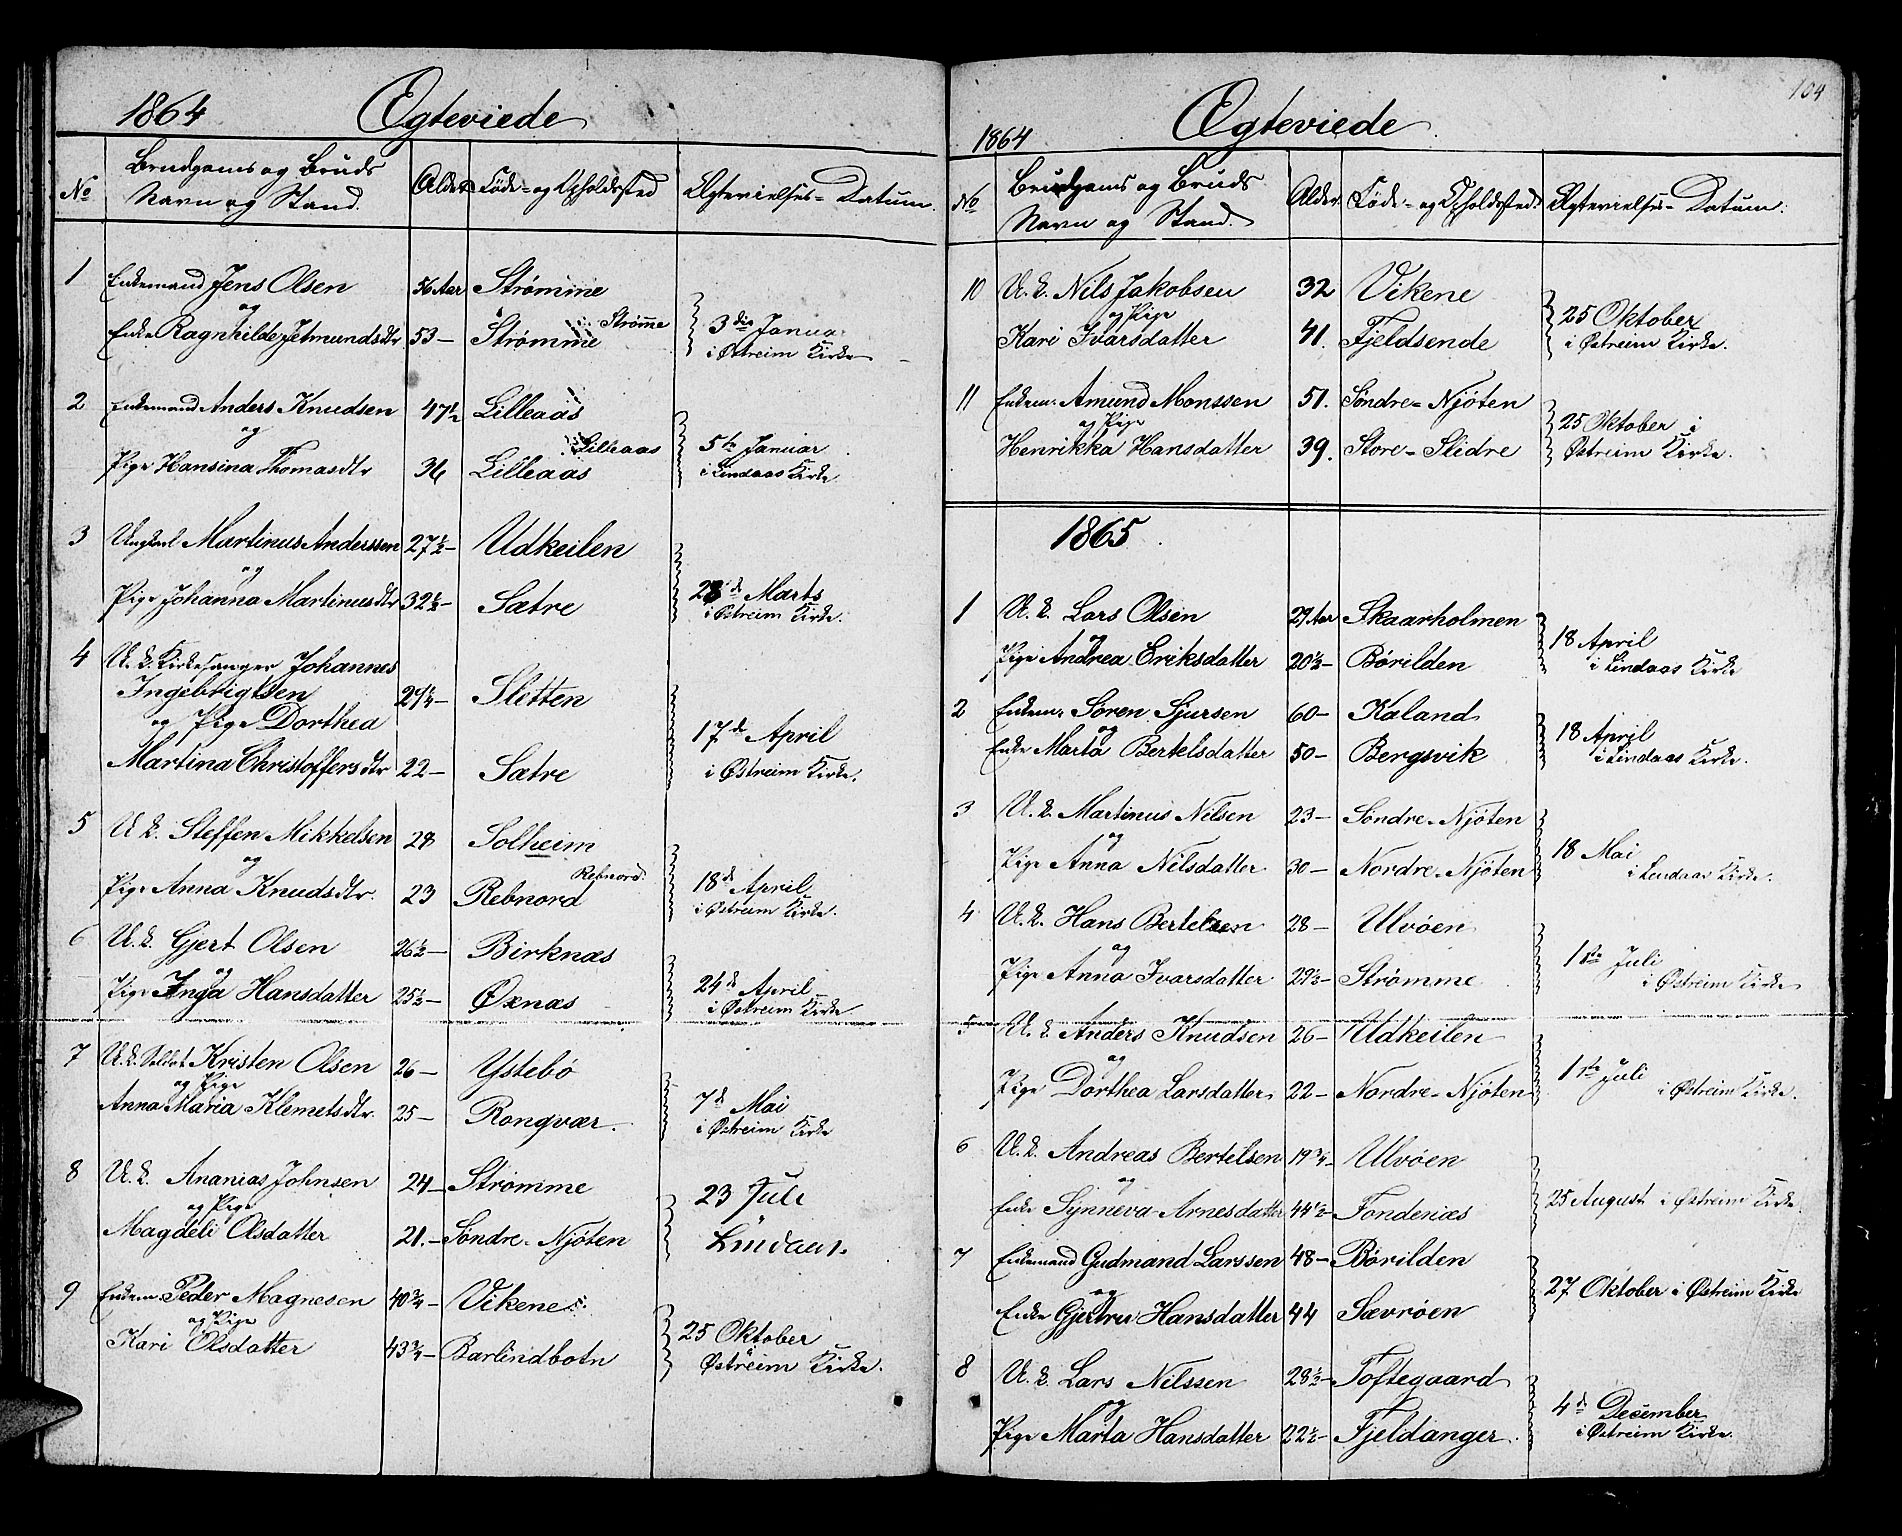 1864 Ægteviede
No Brudgoms og Bruds Navn og Stand. Alder Føde- og Opholdssted Ægtevielses-Datum.
1 Enkemand Jens Olsen 56 Aar Strømme
og
Enke Ragnhilde Jetmundsdtr 53- Strømme Strømme 3die Januar
i Østreim Kirke
2 Enkemand Anders Knudsen 47½ Lilleaas
og
Lilleaas
Pige Hansina Thomasdtr 36 Lilleaas 5te Januar
i Lindaas Kirke
3 Ungkarl Martinus Anderssen 27½- Udkeilen
og
Pige Johanna Martinusdtr 32½- Sætre 28de Marts
i Østreim Kirke.
4 U. K. Kirkesanger Johannes
Ingebrigtsen 29½- Sletten
og Pige Dorthea
Martina Christoffersdtr 22- Sætre 17de April
i Østreim Kirke.
5 U. K. Steffen Mikkelsen 28 Solheim
og
Rebnord
Pige Anna Knudsdtr. 23 Rebnord 18de April
i Østreim Kirke.
6 U. K. Gjert Olsen 26½- Birknæs
og
Pige Inga Hansdatter 25½- Øxnæs 24de April
i Østreim Kirke
7 U. K. Soldat Kristen Olsen 26- Ystebö
og Pige
Anna Maria Klemetsdtr. 25- Rongvær. 7de Mai
i Østreim Kirke
8 U. K. Ananias Johnsen 24- Strømme
og Pige
Magdeli Olsdatter 21.- Søndre-Njöten 23 Juli
Lindaas.
9 Enkem. Peder Magnesen 40¾- Vikene
og Pige
Kari Olsdatter 43¾- Barlindbotn 25 Oktober
Østreim Kirke.
104
1864 Ægteviede.
No Brudgoms og Bruds Navn og Stand. Alder. Føde- og Opholdssted. Ægtevielses-Datum.
10 U. K. Nils Jakobsen 32 Vikene
og Pige
Kari Ivarsdatter 41. Fjeldsende 25 Oktober
i Østreim Kirke.
11 Enkem. Amund Monssen 51. Søndre-Njöten
og Pige
Henrikka Hansdatter 39. Store-Slidre 25 Oktober i
Østreim Kirke.
1865
1 U. K. Lars Olsen 27 Aar Skaarholmen
og
Pige Andrea Eriksdatter 20½- Börilden 18 April
i Lindaas Kirke
2 Enkem. Sören Sjursen 60- Kaland
og
Enke Marta Bertelsdatter 50- Bergsvik 18 April
i Lindaas Kirke.
3 U. K. Martinus Nilsen 23- Søndre-Njöten
og
Pige Anna Nilsdatter 30- Nordre-Njöten 18 Mai
i Lindaas Kirke.
4 U. K. Hans Bertelsen 28- Ulvöen
og
Pige Anna Ivarsdatter 29½- Strømme 1ste Juli
i Østreim Kirke
5 U. K. Anders Knudsen 26- Udkeilen
og
Pige Dorthea Larsdatter 22- Nordre-Njöten 1ste Juli
i Østreim Kirke.
6 U. K. Andreas Bertelsen 19¾- Ulvöen
og
Enke Synneva Arnesdatter 44½- Fondenæs 25 August i Østreim Kirke
7 Enkemand Gudmand Larssen 48- Börilden
og
Enke Gjertru Hansdatter 44 Sævröen 27 Oktober i Østreim Kirke
8 U. K. Lars Nilssen 28½- Toftegaard
og
Pige Marta Hansdatter 22½- Fjeldanger. 4de December
i Østreim Kirke.